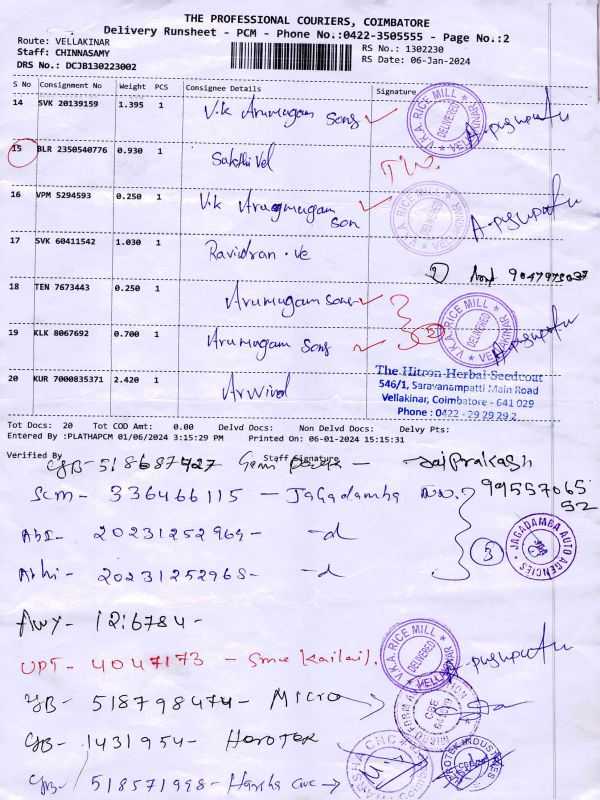 THE PROFESSIONAL COURIERS, COIMBATORE
Delivery Runsheet - PCM - Phone No.:0422-3505555 - Page No.:2
Route: VELLAKINAR
Staff: CHINNASAMY
DRS No.: DCJB130223002
RS No.: 1302230
RS Date: 06-Jan-2024
S No Consignment No Weight PCS Consignee Details Signature
14 SVK 20139159 1.395 1 V.k Arumugam Sons
V.K.A. RICE MILL DELIVERED VELLAKINAR
15 BLR 2350540776 0.930 1 Sakthi Vel
16 VPM 5294593 0.250 1 V.k Arumugam son
V.K.A. RICE MILL DELIVERED VELLAKINAR
17 SVK 60411542 1.030 1
18 TEN 7673443 0.250 1 Arumugam sons
19 KLK 8067692 0.700 1 Arumugam Sons
V.K.A. RICE MILL DELIVERED VELLAKINAR
20 KUR 7000835371 2.420 1 Arvind
The Hitron Herbal Seedcoat
546/1, Saravanampatti Main Road
Vellakinar, Coimbatore - 641 029
Phone : 0422 - 29 29 29 2
Tot Docs: 20 Tot COD Amt: 0.00 Delvd Docs: Non Delvd Docs: Delvy Pts:
Entered By :PLATHAPCM 01/06/2024 3:15:29 PM Printed On: 06-01-2024 15:15:31
Verified By Staff Signature
518687427 - Jai Prakash
Scm - 336466115 - Jagadamba
99557065
52
ABI - 20231252969 - -d
Abhi - 20231252968 - -d
3
JAGADAMBA AUTO AGENCIES
Awy - 1216784 -
UPT - 4047173 -
V.K.A. RICE MILL DELIVERED VELLAKINAR
518798474 - MICRO
1431954 -
518571998 - Harsha cnc